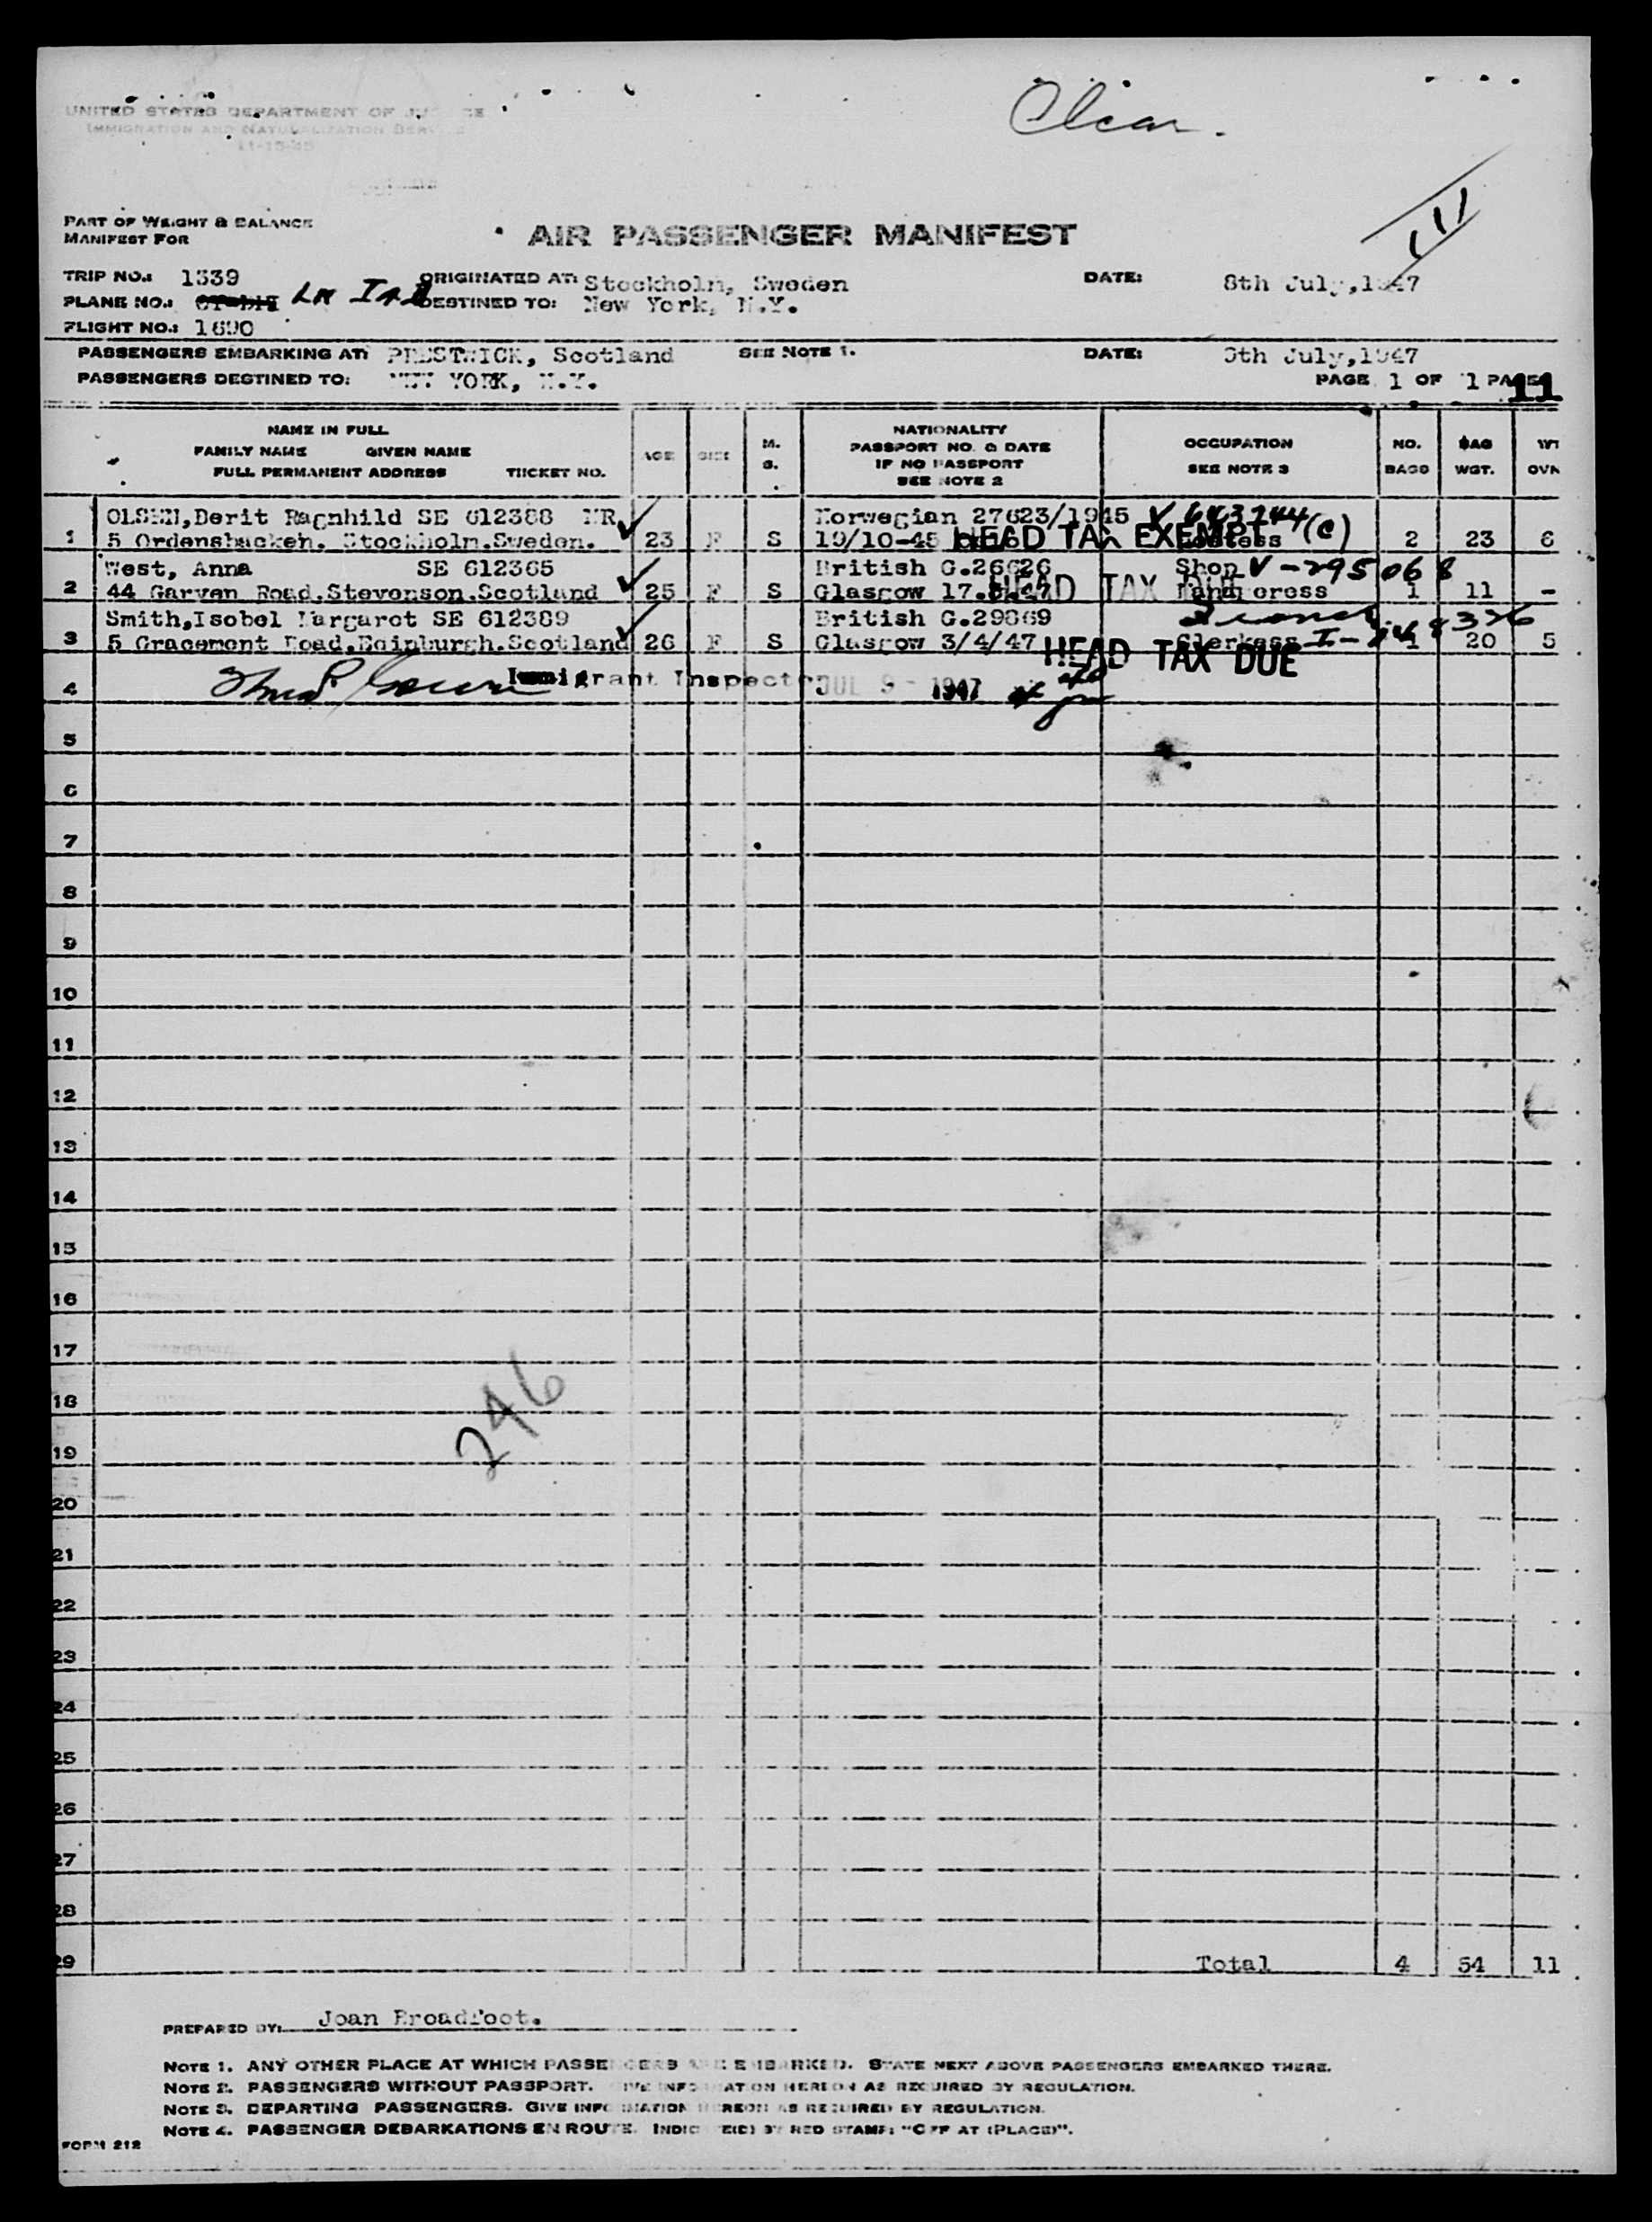 Clear.
UNITED STATES DEPARTMENT OF JUSTICE
IMMIGRATION AND NATURALIZATION SERVICE
11-15-45
PART OF WEIGHT & BALANCE
MANIFEST FOR
AIR PASSENGER MANIFEST
TRIP NO.: 1339 ORIGINATED AT: Stockholm, Sweden DATE: 8th July, 1947
PLANE NO.: DESTINED TO: New York, N.Y.
FLIGHT NO.: 1690
PASSENGERS EMBARKING AT: PRESTWICK, Scotland SEE NOTE 1. DATE: 9th July, 1947
PASSENGERS DESTINED TO: NEW YORK, N.Y. PAGE 1 OF 1 PAGES 11
NAME IN FULL
FAMILY NAME GIVEN NAME
FULL PERMANENT ADDRESS TICKET NO.
AGE SEX M. S.
NATIONALITY
PASSPORT NO. & DATE
IF NO PASSPORT
SEE NOTE 2
OCCUPATION
SEE NOTE 3
NO. BAGS
BAG WGT.
WT OVN
OLSEN, Berit Ragnhild SE 612388 NR Norwegian 27623/1945 V 643244 (c)
1 5 Ordensbacken. Stockholm. Sweden. 23 F S 19/10-45 HEAD TAX EXEMPT 2 23 6
West, Anna SE 612365 British G.26626 Shop V-295068
2 44 Garven Road, Stevenson, Scotland 25 F S Glasgow HEAD TAX DUE 1 11 -
Smith, Isobel Margaret SE 612389 British G.29869
3 5 Gracemont Road, Edinburgh. Scotland 26 F S Glasgow 3/4/47 Clerkess 1 20 5
HEAD TAX DUE
4 Immigrant Inspector JUL 9 - 1947
5
6
7
8
9
10
11
12
13
14
15
16
17
18
246
19
20
21
22
23
24
25
26
27
28
29 Total 4 54 11
PREPARED BY: Joan Broadfoot.
NOTE 1. ANY OTHER PLACE AT WHICH PASSENGERS ARE EMBARKED. STATE NEXT ABOVE PASSENGERS EMBARKED THERE.
NOTE 2. PASSENGERS WITHOUT PASSPORT. GIVE INFORMATION HEREON AS REQUIRED BY REGULATION.
NOTE 3. DEPARTING PASSENGERS. GIVE INFORMATION HEREON AS REQUIRED BY REGULATION.
NOTE 4. PASSENGER DEBARKATIONS EN ROUTE. INDICATE(D) BY RED STAMP: "OFF AT (PLACE)".
FORM 212